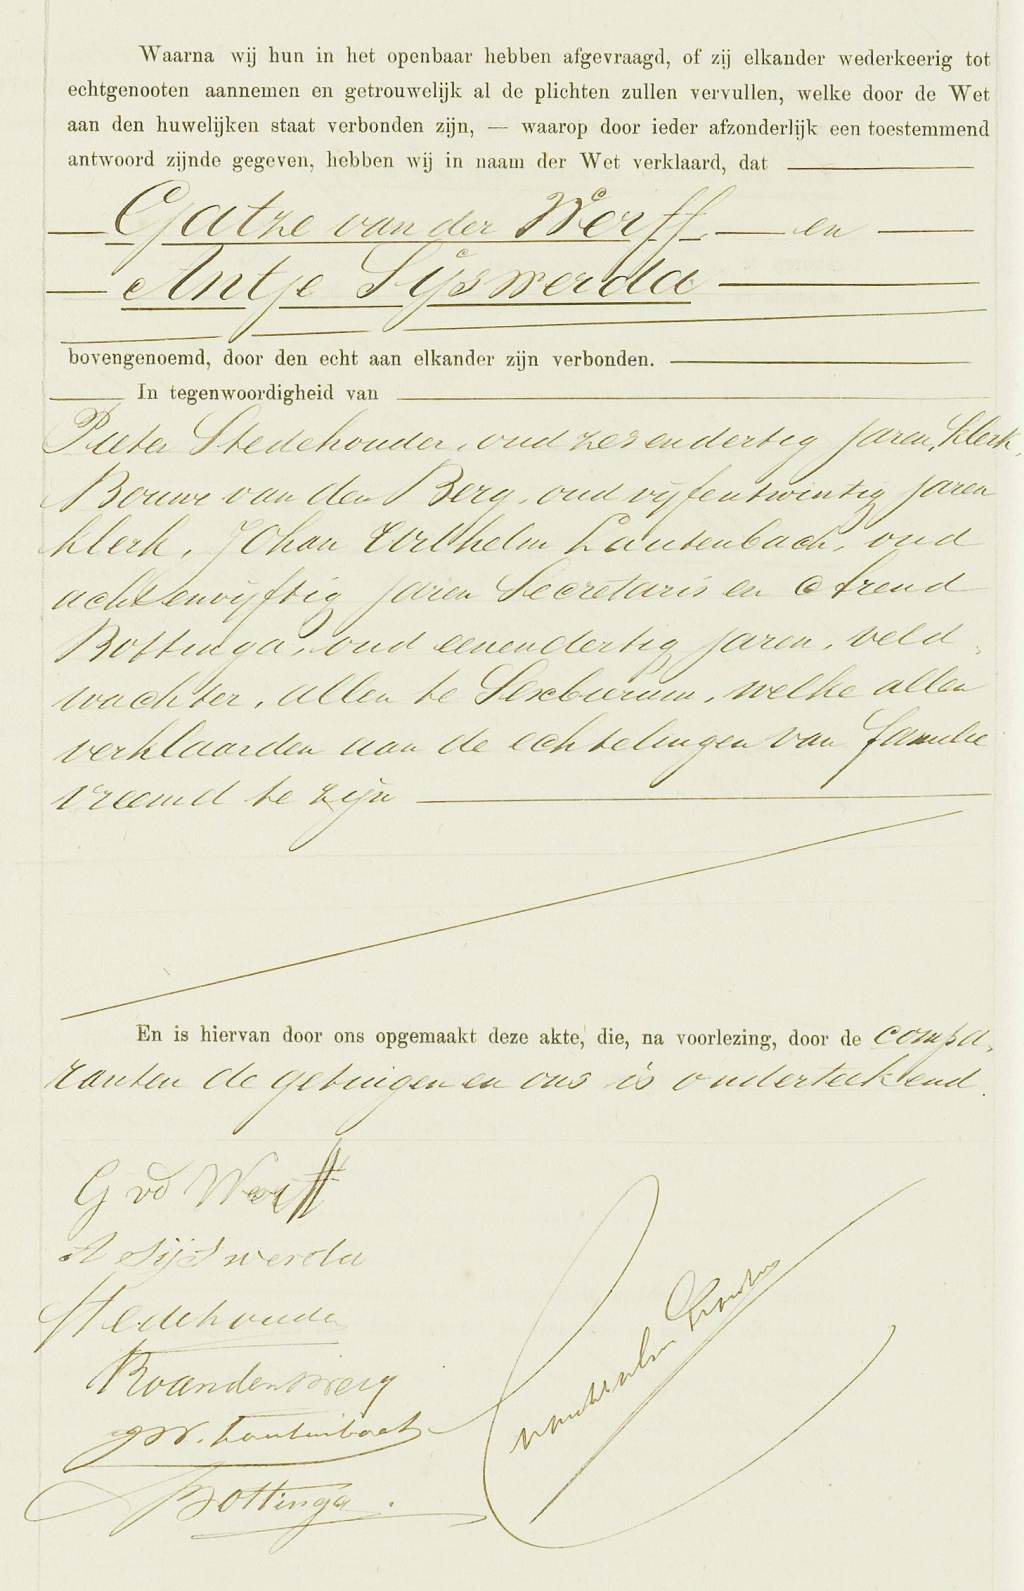 Waarna wij hun in het openbaar hebben afgevraagd, of zij elkander wederkeerig tot
echtgenooten aannemen en getrouwelijk al de plichten zullen vervullen, welke door de Wet
aan den huwelijken staat verbonden zijn, — waarop door ieder afzonderlijk een toestemmend
antwoord zijnde gegeven, hebben wij in naam der Wet verklaard, dat
Gatze van der Werff en
Antje Sijswerda
bovengenoemd, door den echt aan elkander zijn verbonden.
In tegenwoordigheid van
Pieter Stedehouder, oud zesendertig jaren, klerk,
Bouwe van den Berg, oud vijfentwintig jaren
klerk, Johan Wilhelm Lautenbach, oud
achtenvijftig jaren Secretaris en Arend
Bottinga, oud eenendertig jaren, veld
wachter, allen te Sexbierum, welke allen
verklaarden aan de echtelingen van familie
vreemd te zijn
En is hiervan door ons opgemaakt deze akte, die, na voorlezing, door de compa,
ranten de getuigen en ons is onderteekend.
G vd Werff
A Sijswerda
Stedehouder
Bvandenberg
JW. Lautenbach
ABottinga.